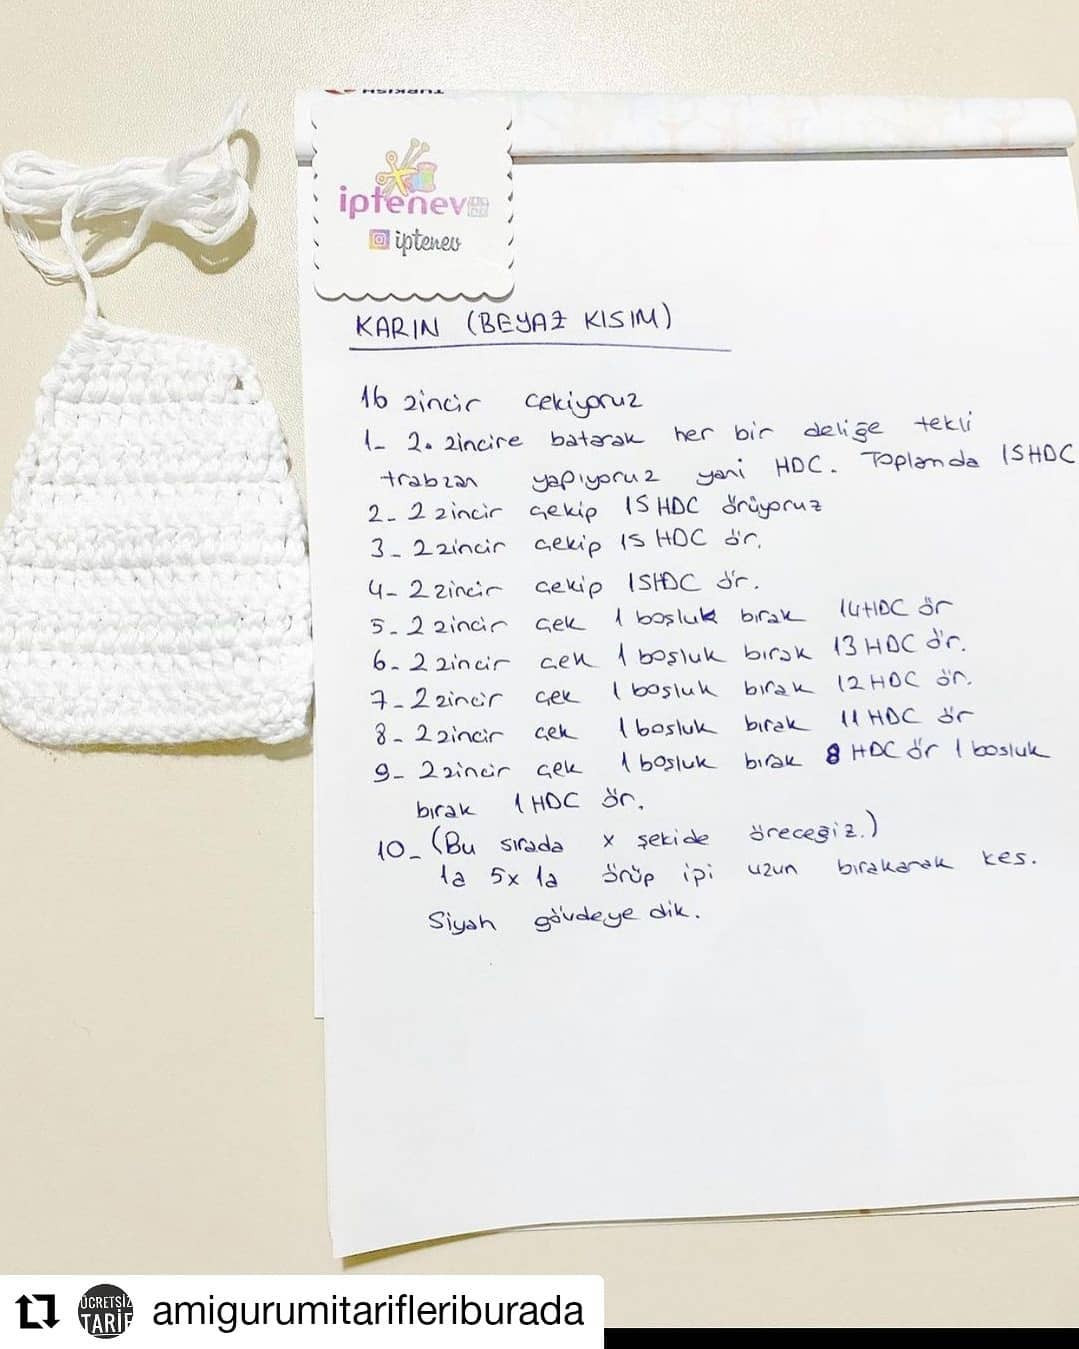 TURKISH
iptenev
iptenev
KARIN (BEYAZ KISIM)
16 zincir çekiyoruz
1- 2. zincire batarak her bir deliğe tekli
trabzan yapıyoruz yani HDC. Toplamda 15HDC
2- 2 zincir çekip 15 HDC örüyoruz
3- 2 zincir çekip 15 HDC ör.
4- 2 zincir çekip 15HDC ör.
5- 2 zincir çek 1 boşluk bırak 14HDC ör
6- 2 zincir çek 1 boşluk bırak 13 HDC ör.
7- 2 zincir çek 1 boşluk bırak 12 HDC ör.
8- 2 zincir çek 1 boşluk bırak 11 HDC ör
9- 2 zincir çek 1 boşluk bırak 8 HDC ör 1 boşluk
bırak 1 HDC ör.
10- (Bu sırada x şekide öreceğiz.)
1a 5x 1a örüp ipi uzun bırakarak kes.
Siyah gövdeye dik.
ÜCRETSİZ
TARİF
amigurumitarifleriburada